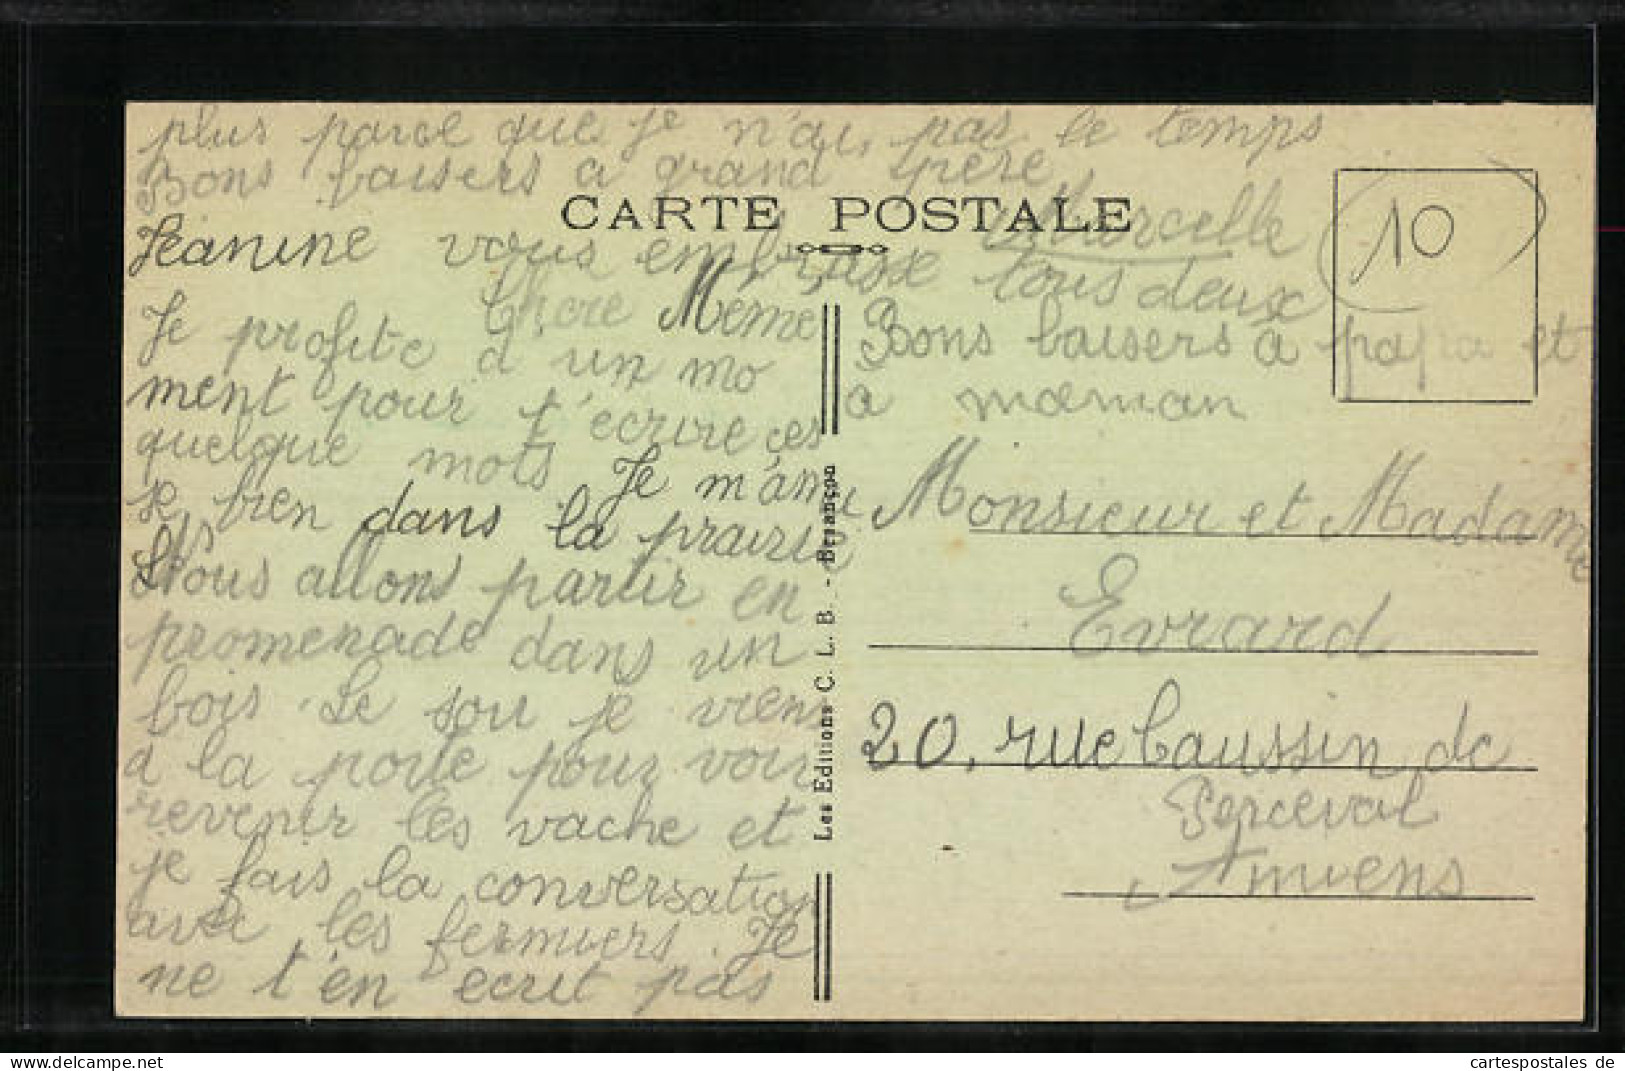 plus parce que je n'ai pas le temps
Bons baisers a grand père
Marcelle
CARTE POSTALE
Jeanine vous embrasse tous deux
Chere Mémé
Je profite d un mo
ment pour t'écrire ces
quelque mots. Je m'amu
se bien dans la prairie
Nous allons partir en
promenade dans un
bois. Le soir je viens
a la porte pour voir
revenir les vache et
je fais la conversation
avec les fermiers. Je
ne t'en écrit pas
Les Editions C. L. B. - Besançon
Bons baisers à papa et
à maman
Monsieur et Madame
Evrard
20, rue Caussin de
Perceval
Amiens
10
www.cartespostales.de
cartespostales de